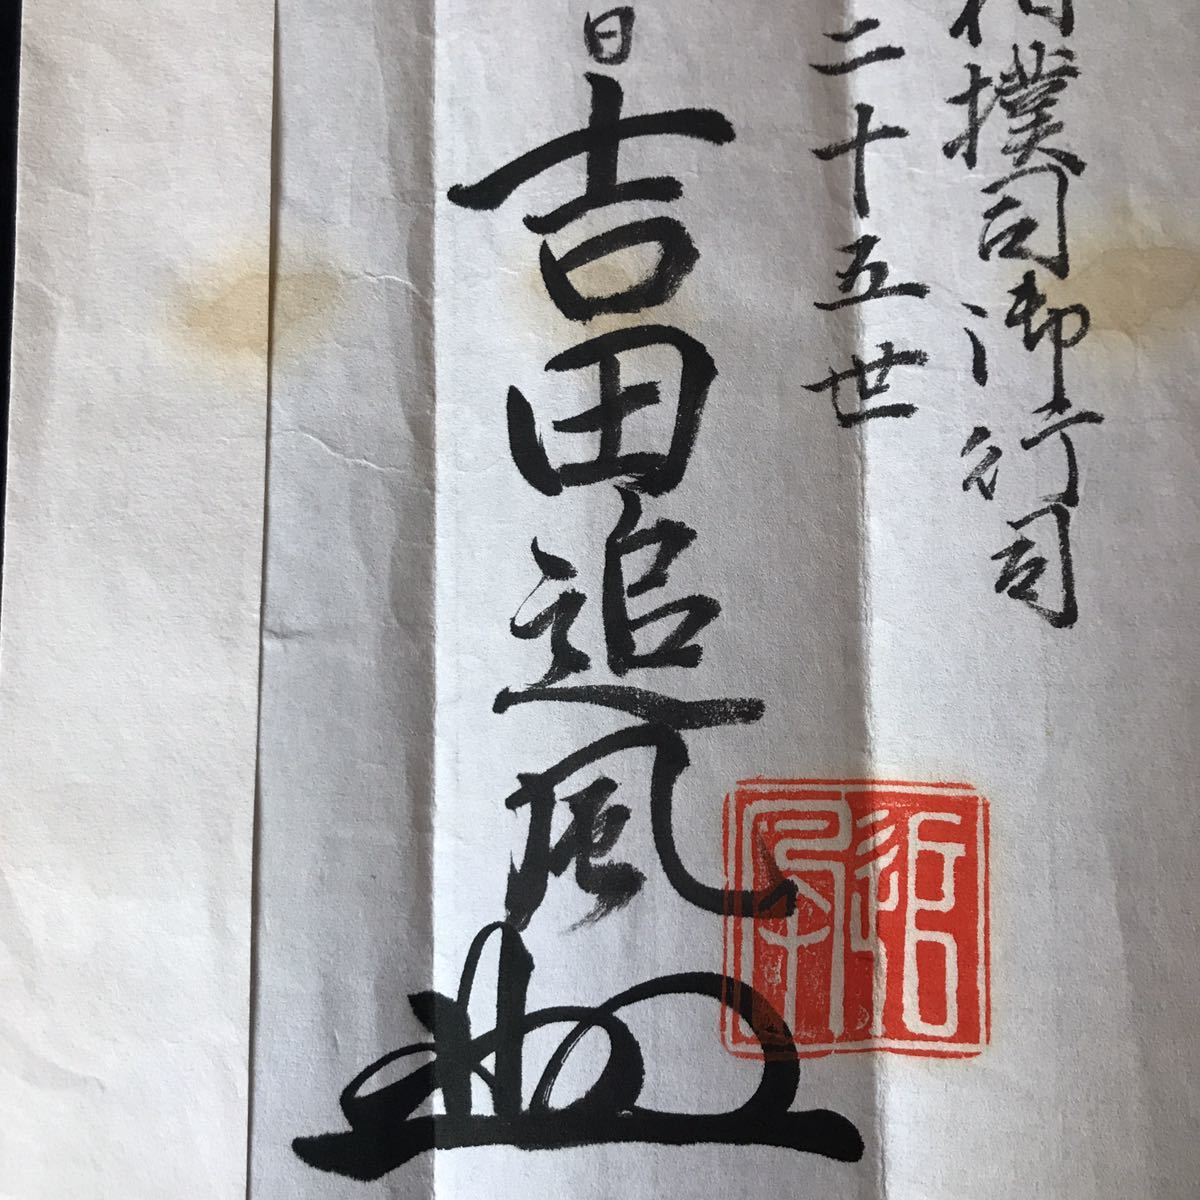 相撲司御行司
二十五世
日
吉田追風